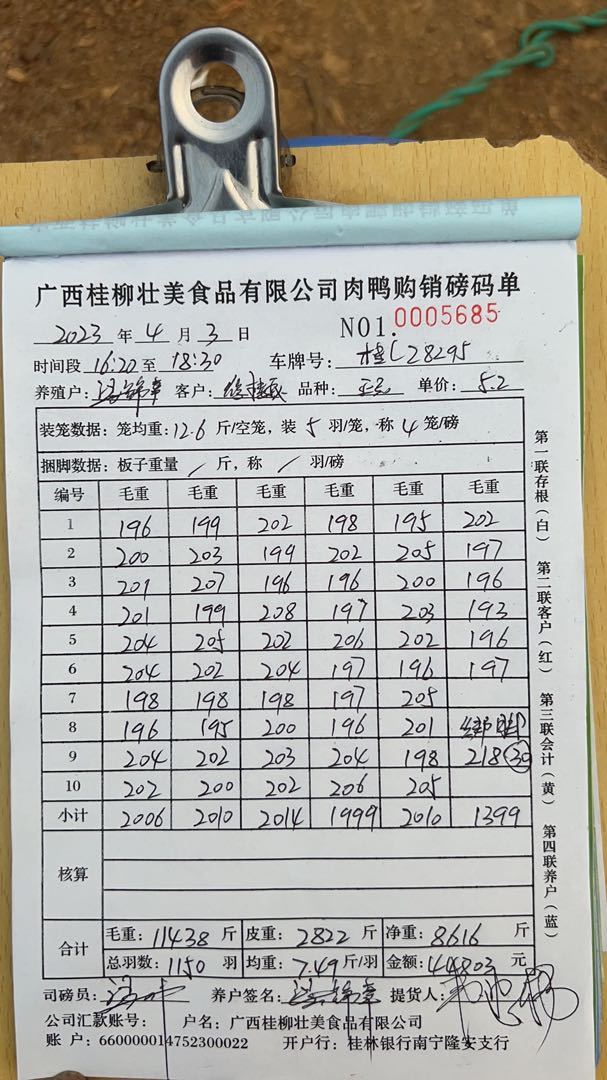 广西桂柳壮美食品有限公司肉鸭购销磅码单
2023 年 4 月 3 日 NO1. 0005685
时间段 16:20 至 18:30 车牌号: 桂L28295
养殖户: 客户: 品种: 单价: 5.2
装笼数据: 笼均重: 12.6 斤/空笼, 装 5 羽/笼, 称 4 笼/磅
捆脚数据: 板子重量 / 斤, 称 / 羽/磅
编号 毛重 毛重 毛重 毛重 毛重 毛重
1 196 199 202 198 195 202
2 200 203 199 202 205 197
3 201 207 196 196 200 196
4 201 199 208 197 203 193
5 204 205 202 206 202 196
6 204 202 204 197 196 197
7 198 198 198 197 205
8 196 195 200 196 201 绑脚
9 204 202 203 204 198 218 30
10 202 200 202 206 205
小计 2006 2010 2014 1999 2010 1399
核算
合计 毛重: 11438 斤 皮重: 2822 斤 净重: 8616 斤
总羽数: 1150 羽 均重: 7.49 斤/羽 金额: 44803 元
司磅员: 养户签名: 提货人:
公司汇款账号: 户名: 广西桂柳壮美食品有限公司
账 户: 660000014752300022 开户行: 桂林银行南宁隆安支行
第一联存根(白) 第二联客户(红) 第三联会计(黄) 第四联养户(蓝)